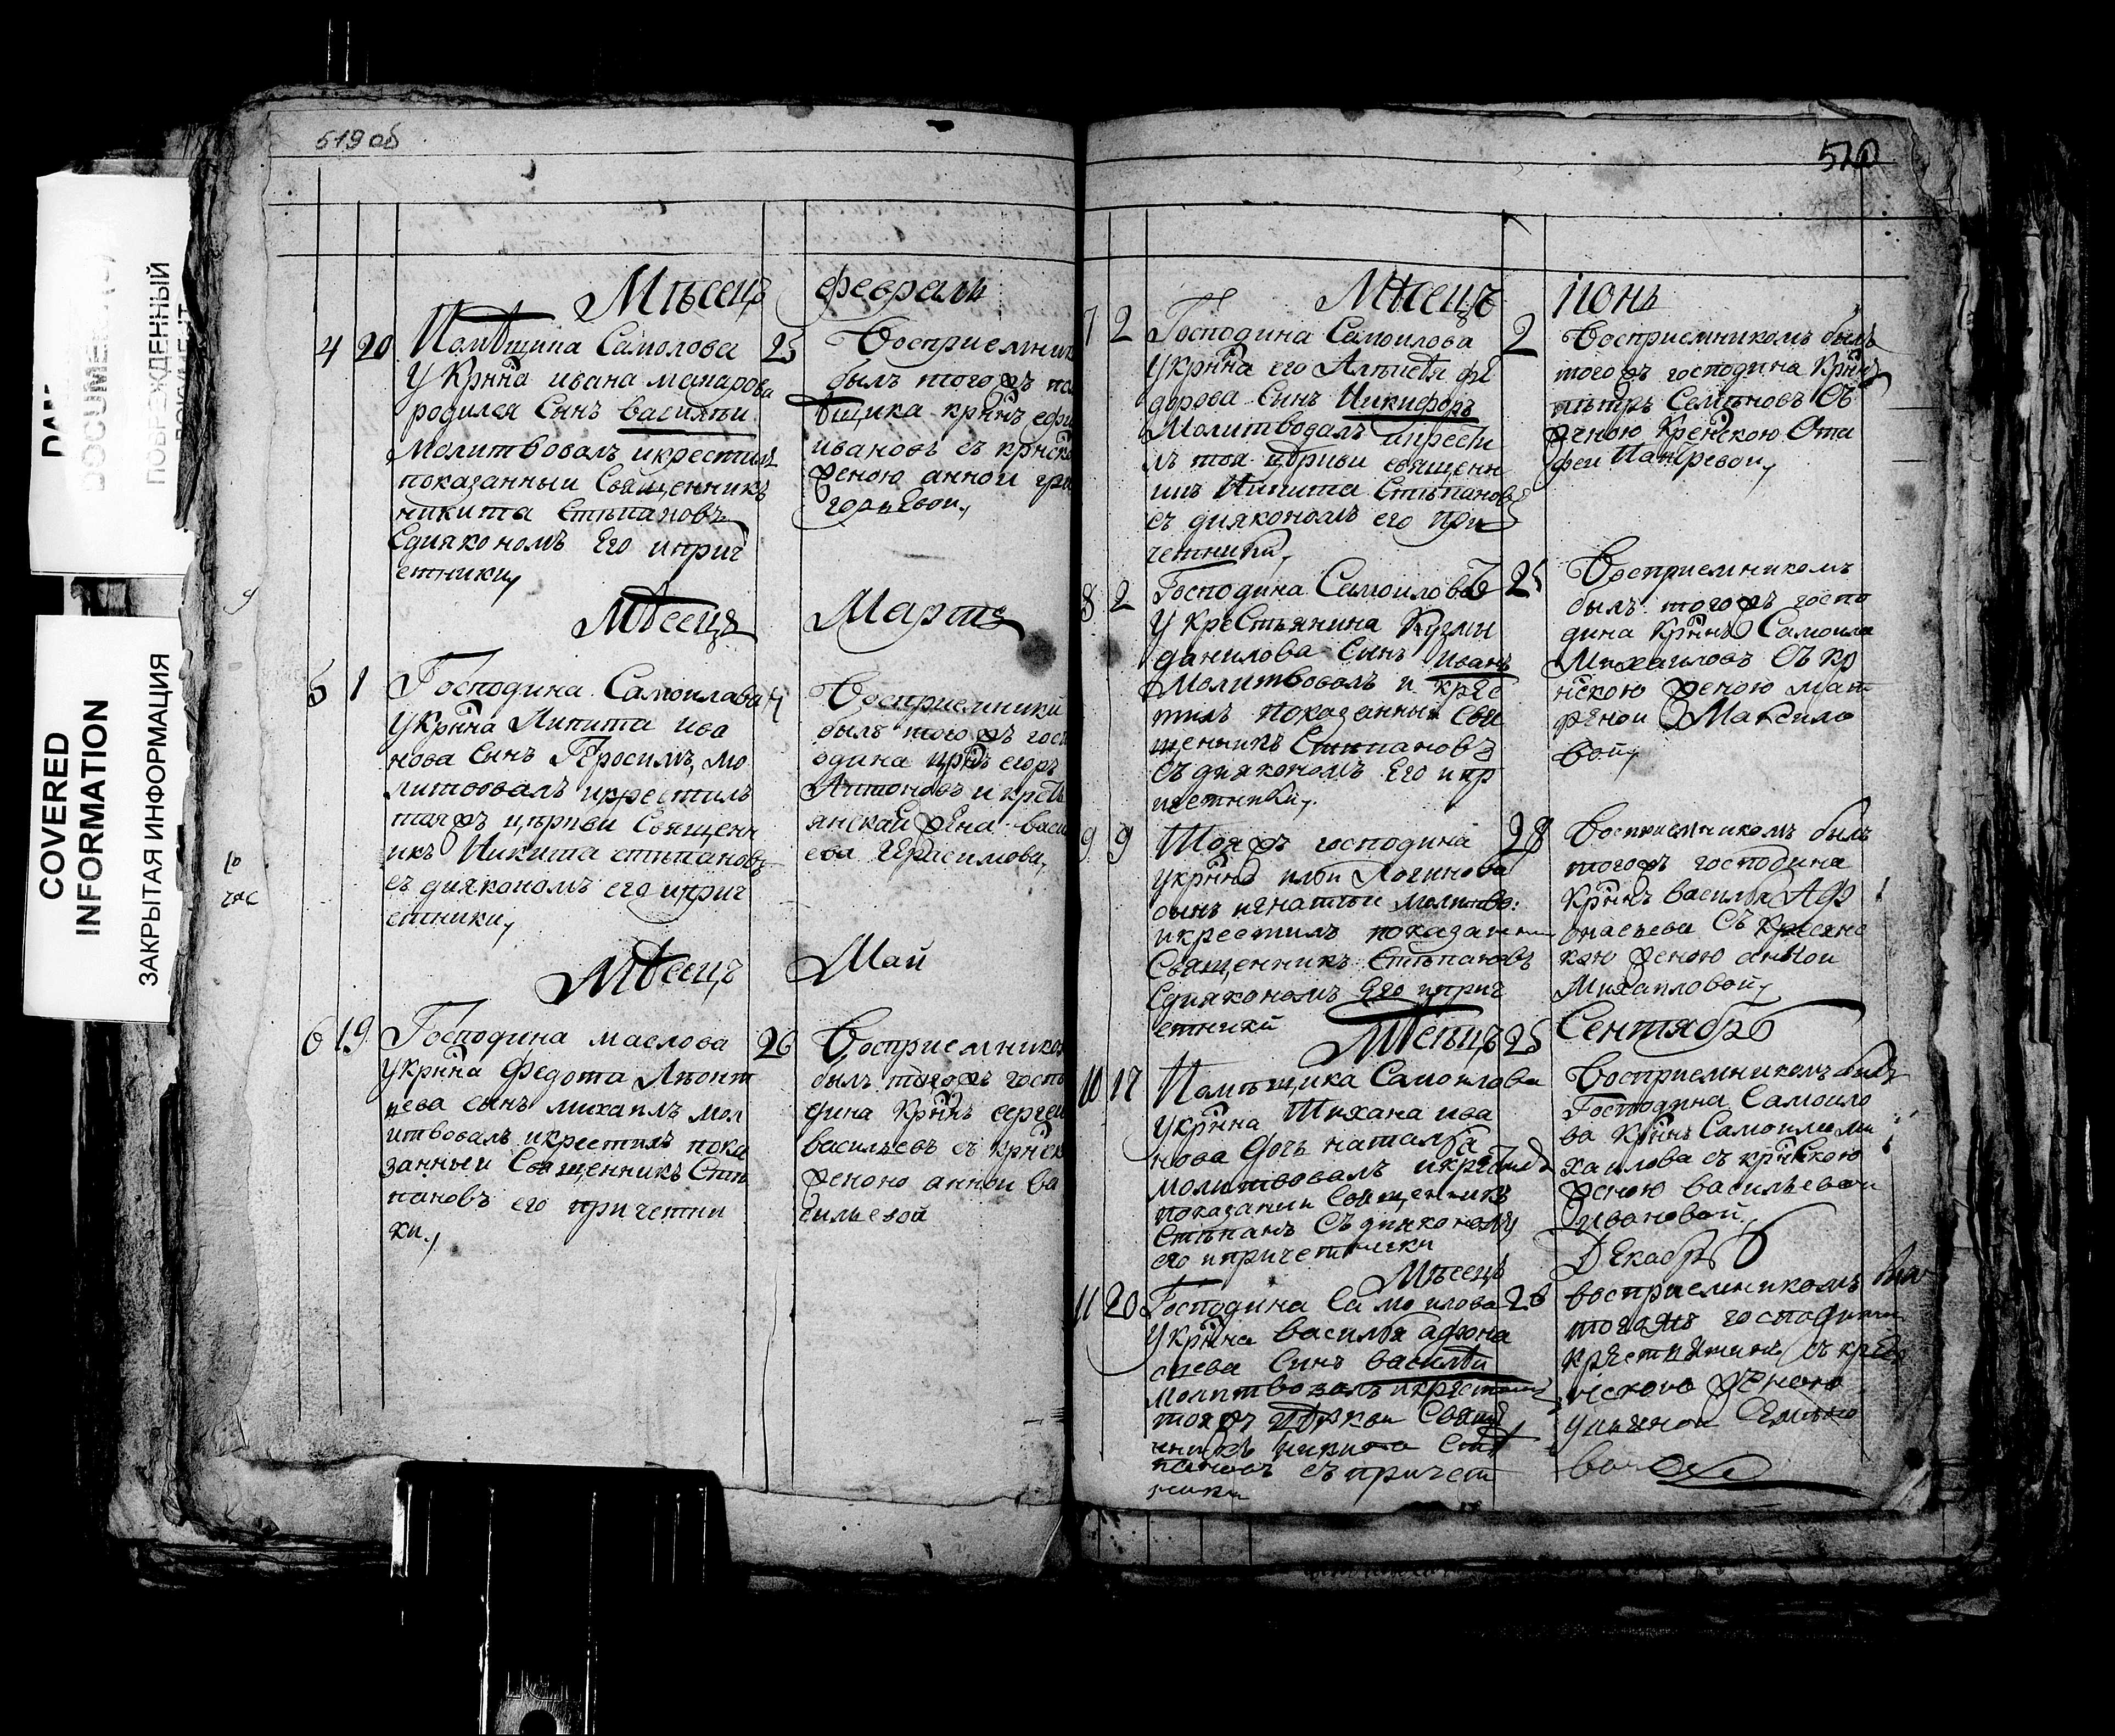 519 об
Мѣсецъ февраль
4 20 Помѣщика Самолова 25
У крⷭ҇нина ивана макарова
родился Сынъ василѣи
Молитвовалъ икрестилъ
показанныи Священникъ
никита Стѣпановъ
Сдиякономъ Его иприч
етники,
Восприемник
былъ тогожъ по
ѣщика крⷭ҇нинъ
ивановъ съ крⷭ҇нско
женою анной гри
горьевои,
Мѣсецъ Мартъ
5 1 Господина Самоилова
У Крⷭ҇нина Никита ива
нова Сынъ Геросимъ, мо
литвовалъ икрестилъ
тояжъ църкви Священн
икъ Никита стѣпановъ
съ диякономъ его иприч
етники,
Восприемники
былъ тогожъ госп
одина крⷭ҇нинъ егоръ
Антоновъ и крсть
янская жена васи
ева Герасимова,
Мѣсецъ Май
6 19 Господина маслова 26
У крⷭ҇нина Федота
нева сынъ михаилъ мол
итвовалъ икрестилъ пока
занныи Священникъ Стѣ
пановъ его причетни
ки,
Восприемником
былъ тогожъ госпо
дина Крⷭ҇нинъ сергеи
васильевъ съ крⷭ҇нск
женою анной ва
сильевой
520
Мѣсецъ июнь
7 2 Господина Самоилова 2
У крⷭ҇нина его Алѣксѣя фе
дорова Сынъ Никифоръ
Молитвовалъ икрести
лъ тоя църкви священн
икъ Никита Стѣпановъ
съ диякономъ его при
четники,
Восприемникомъ былъ
тогожъ господина Крⷭ҇нинъ
пѣтръ Семѣновъ Съ
женою Крⷭ҇нскою
8 2 Господина Самоилова 25
У Крестьянина Кузми
данилова Сынъ иванъ
Молитвовалъ и крес
тилъ показанныи Свя
щенникъ Стѣпановъ
съ диякономъ Его ипр
ичетники,
Восприемникомъ
былъ тогожъ госпо
дина Крⷭ҇нинъ Самоила
Михаиловъ Съ кр
нскою женою мат
реной Максимо
вой,
9 9 Тояжъ господина 28
У крⷭ҇нина или Логинова
сынъ игнатѣи молитво:
икрестилъ показанны
Священникъ Стѣпановъ
Сдиякономъ Его иприч
етники
Восприемникомъ былъ
тогожъ господина
Крⷭ҇нинъ василѣя Аф
онасьева Съ Кресьянс
кою женою анной
Михаиловой,
Мѣсецъ Сентябрь
10 17 Помѣщика Самоилова 25
У крⷭ҇нина Тихана ива
нова дочь наталѣя
молитвовалъ икрестилъ
показанны Священникъ
Стѣпанъ Съ диякономъ
его ипричетники
Восприемникомъ былъ
Господина Самоило
ва Крⷭ҇нинъ Самоила ми
хаилова съ крⷭ҇нскою
женою васильевой
ивановой
Мѣсецъ Декабрь
11 20 Господина Самоилова 26
У крⷭ҇нина василѣя афона
сиева Сынъ василѣи
молитвовалъ икрестилъ
тояжъ църкви Свящ
нникъ никита Стѣ
пановъ съ причет
ники
восприемникомъ был
тогожъ господина
крестиянинъ съ крес
нскою женою
ульяной Семено
вой
10
час
DOCUMENT
ПОВРЕЖДЕННЫЙ
ДОКУМЕНТ
COVERED
INFORMATION
ЗАКРЫТАЯ ИНФОРМАЦИЯ